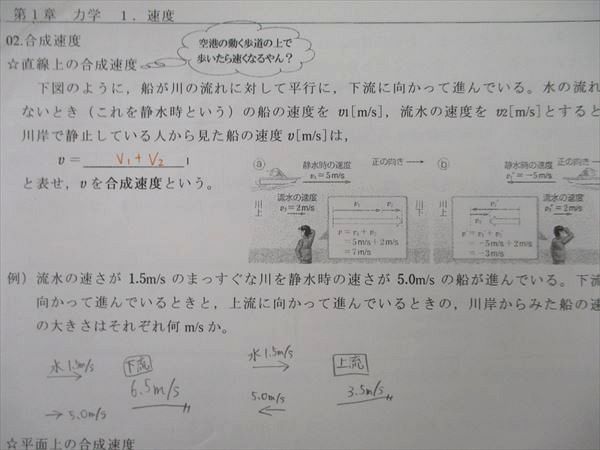 第1章 力学 1．速度
02.合成速度
空港の動く歩道の上で
歩いたら速くなるやん？
☆直線上の合成速度
下図のように，船が川の流れに対して平行に，下流に向かって進んでいる。水の流れ
ないとき（これを静水時という）の船の速度を v1[m/s]，流水の速度を v2[m/s]とすると
川岸で静止している人から見た船の速度 v[m/s]は，
v = V₁ + V₂
と表せ，v を合成速度という。
ⓐ 静水時の速度 正の向き→
v₁＝5m/s
川上
流水の速度
v₂＝2m/s
v₁ v₂
v
v＝v₁＋v₂
＝5m/s＋2m/s
＝7m/s
川下
ⓑ 静水時の速度
v₁'＝−5m/s
川上
流水の速度
v₂'＝2m/s
v'＝v₁'＋v₂'
＝−5m/s＋2m/s
＝−3m/s
例）流水の速さが 1.5m/s のまっすぐな川を静水時の速さが 5.0m/s の船が進んでいる。下流
向かって進んでいるときと，上流に向かって進んでいるときの，川岸からみた船の速
の大きさはそれぞれ何 m/s か。
水1.5m/s → 下流
6.5m/s
→ 5.0m/s
水1.5m/s → 上流
5.0m/s ←
3.5m/s
☆平面上の合成速度